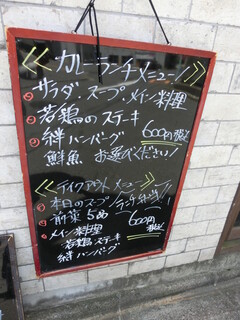 カレーランチメニュー
サラダ、スープ、メイン料理
若鶏のステーキ
絆ハンバーグ 600円税込
鮮魚、お選びください!
テイクアウト メニュー
本日のスープ
前菜 5め 600円税込
メイン料理
若鶏ステーキ
絆ハンバーグ